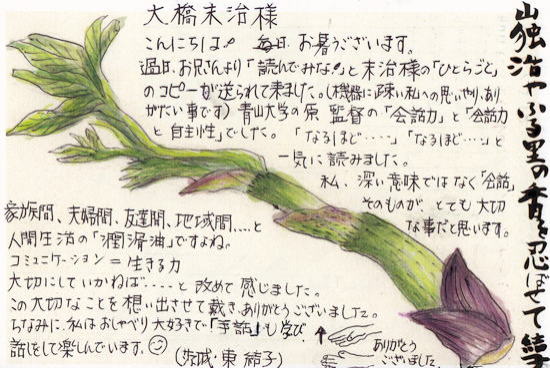 大橋末治様
こんにちは! 毎日、お暑うございます。
過日、お兄さんより「読んでみな!」と末治様の「ひとりごと」
のコピーが送られて来ました。(機器に疎い私への思いやり、あり
がたい事です) 青山大学の原 監督の「会話力」と「会話力
と自主性」でした。「なるほど・・・・」「なるほど・・・」と
一気に読みました。
私、深い意味ではなく「会話」
そのものが、とても大切
な事だと思います。
家族間、夫婦間、友達間、地域間....と
人間生活の「潤滑油」ですよね。
コミュニケーション=生きる力
大切にしていかねば・・・・・と 改めて感じました。
この大切なことを想い出させて戴き、ありがとうございました。
ちなみに、私はおしゃべり大好きで!「手話」も学び
話しをして楽しんでいます。
(茨城・東 結子)
ありがとう
ございました。
山独活やふる里の香を忍ばせて 結子